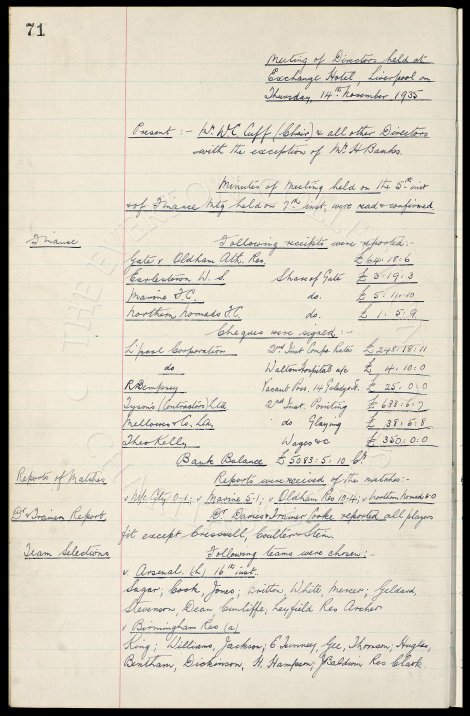 71
Meeting of Directors held at
Exchange Hotel, Liverpool on
Thursday, 14th November 1935
Present :- Mr. W.C. Cuff (Chair) & all other Directors
with the exception of Mr. H. Banks.
Minutes of Meeting held on the 5th inst
& of Finance Mtg held on 7th inst, were read & confirmed
Finance Following receipts were reported:-
Gate v Oldham Ath. Res £64:18:6
Earlestown W. S. Share of Gate £3:19:3
Marine F.C. do. £5:11:10
Northern Nomads F.C. do. £1:5:9
Cheques were signed:-
L'pool Corporation 2nd Inst Rates £248:18:11
do Walton Hospital a/c £4:10:0
R Dempsey Vacant Poss. 14 £25:0:0
Tysons (Contractors) Ltd 2nd Inst. Painting £633:6:7
Mellowes & Co. Ltd. do Glazing £38:5:8
Theo Kelly Wages &c £350:0:0
Bank Balance £5083:5:10 Cr.
Reports of Matches Reports were received of the matches:-
v M/c City 0-1; v Marine 5-1; v Oldham Res; v Northern Nomads
Dr & Trainers Report, Dr. Davies & Trainer Cooke reported all players
fit except Cresswell, Coulter & Stein.
Team Selections Following teams were chosen:-
v Arsenal (h) 16th inst.
Sagar; Cook, Jones; Britton, White, Mercer; Geldard,
Stevenson, Dean, Cunliffe, Leyfield Res Archer
v Birmingham Res (a)
King; Williams, Jackson; E Tunney, Gee, Thomson; Hughes,
Bentham, Dickinson, H. Hampson, J Baldwin Res Clark.